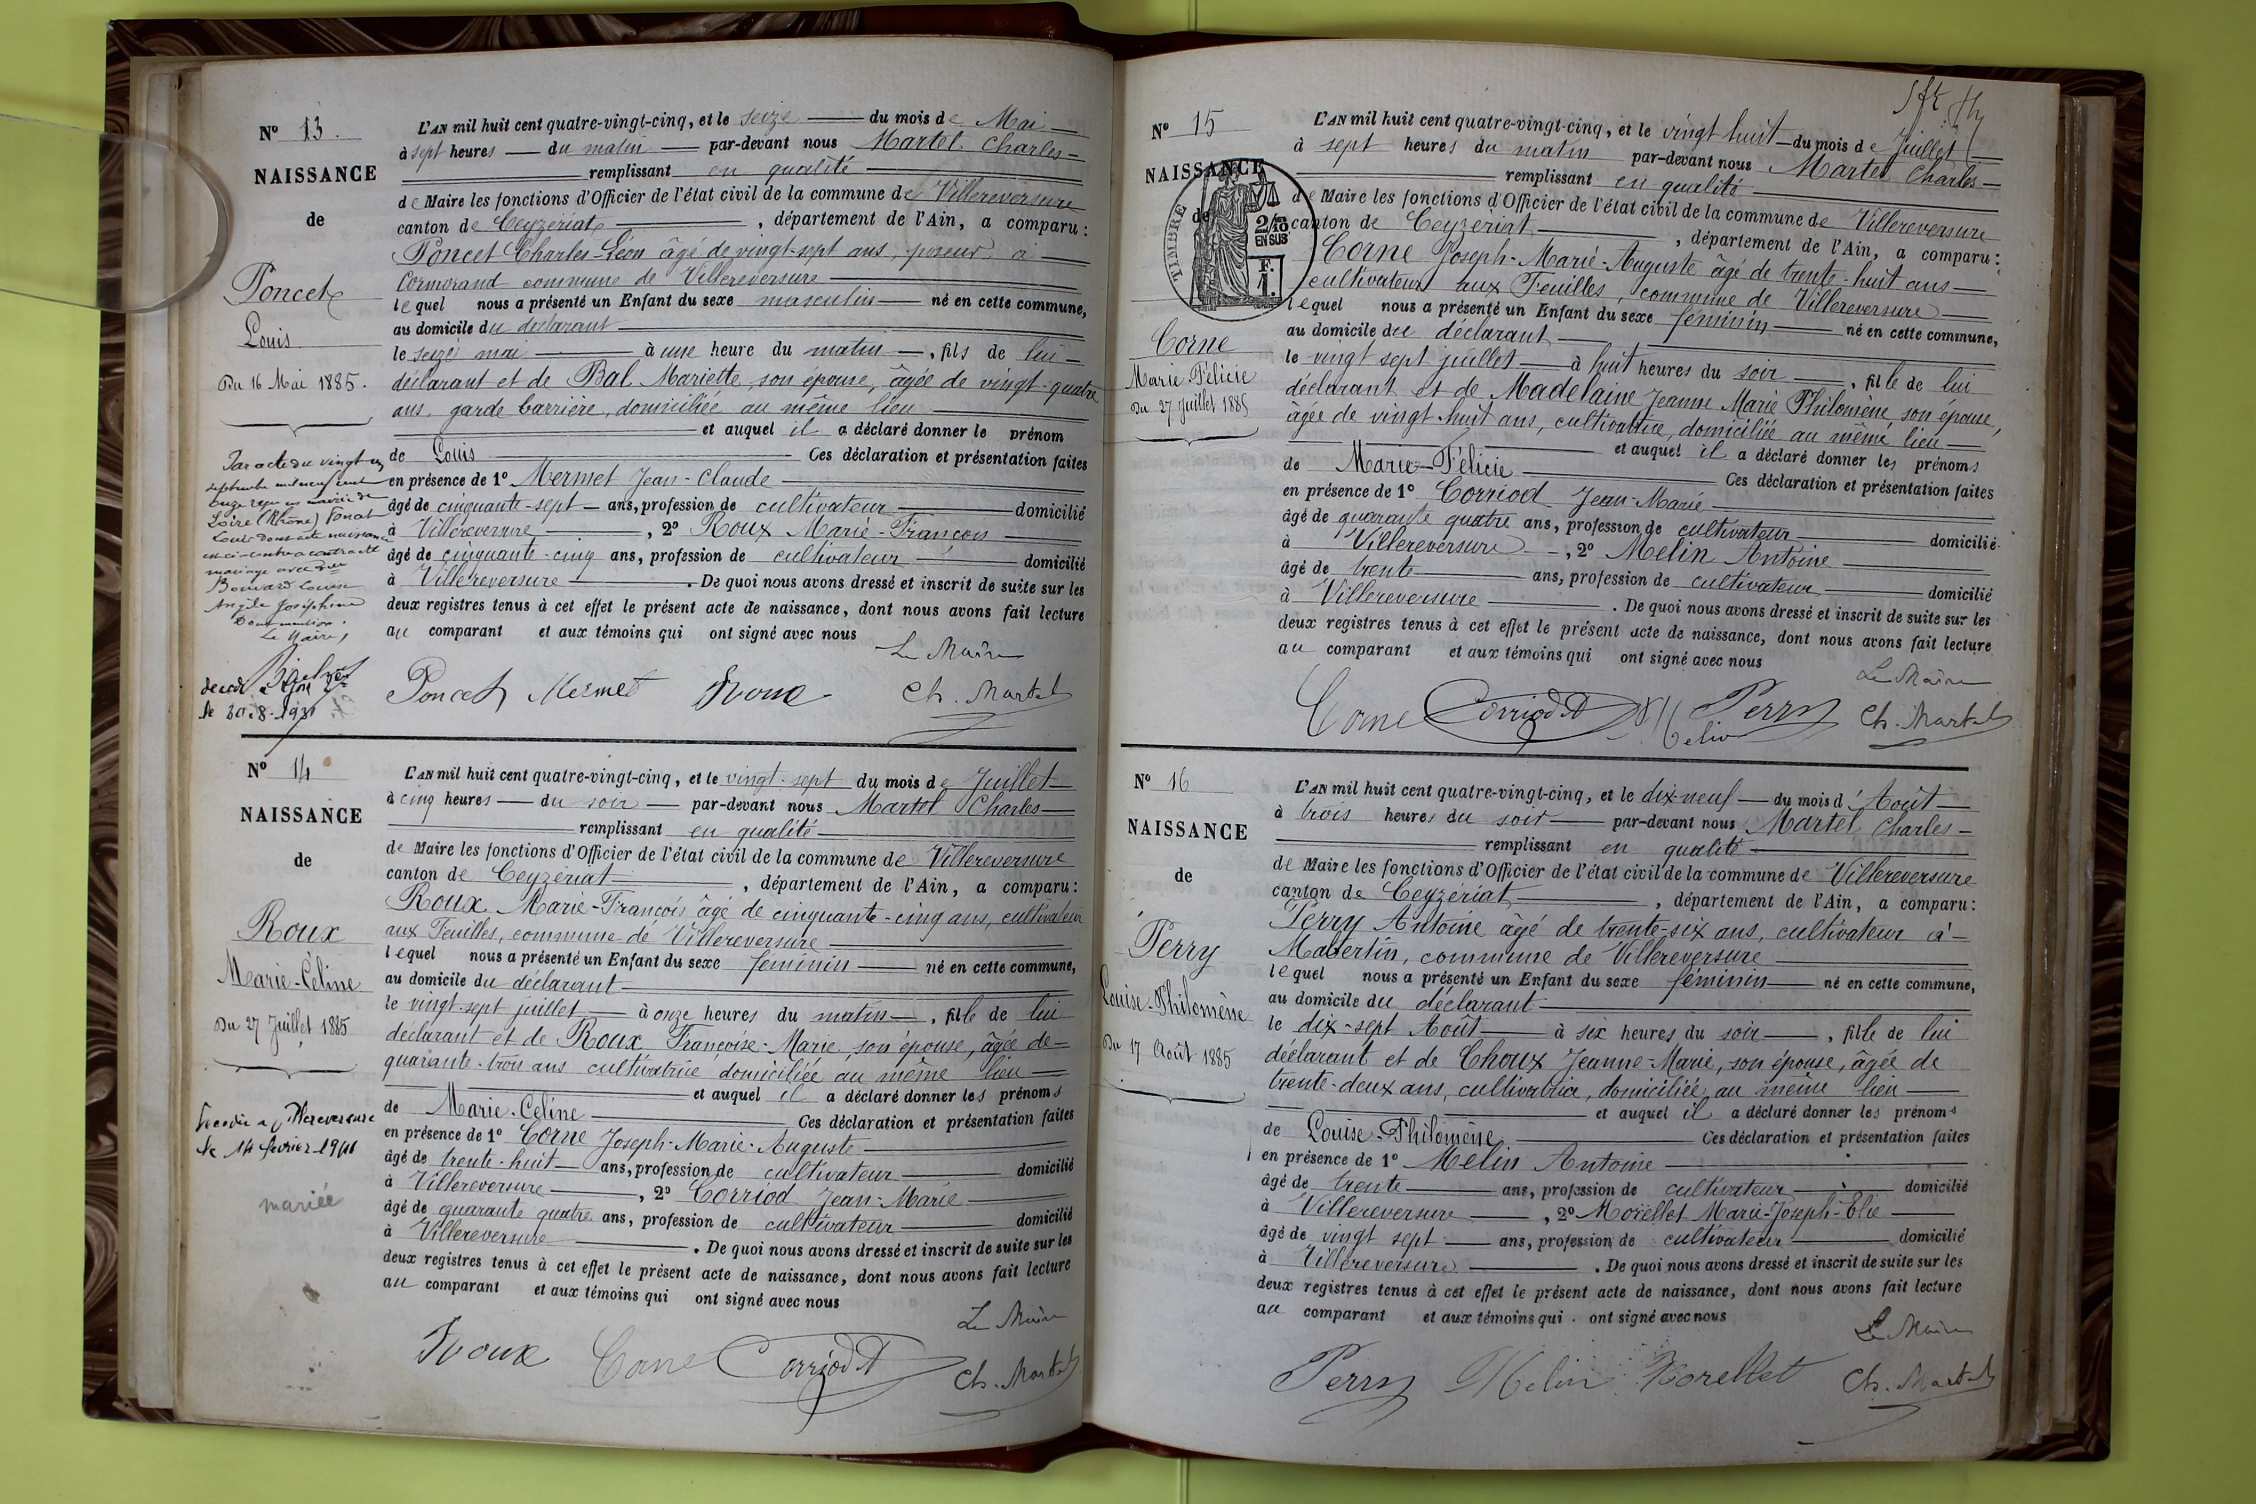 Nº 13.
NAISSANCE
de
Poncet
Louis
Du 16 Mai 1885.
Par acte du vingt un
septembre mil neuf cent
onze reçu en mairie de
Loire (Rhône) Poncet
Louis dont acte naissance
est ci-contre a contracté
mariage avec Dlle
Bouvard Louise
Angèle Joséphine
Pour mention.
Le Maire,
le 30.8.1931
L'AN mil huit cent quatre-vingt-cinq, et le seize du mois de Mai
à sept heures du matin par-devant nous Martel Charles
remplissant en qualité
de Maire les fonctions d'Officier de l'état civil de la commune de Villereversure
canton de Ceyzériat, département de l'Ain, a comparu :
Poncet Charles-Léon âgé de vingt-sept ans, poseur, à
Cormorand commune de Villereversure
lequel nous a présenté un Enfant du sexe masculin né en cette commune,
au domicile du déclarant
le seize mai à une heure du matin, fils de lui
déclarant et de Bal Mariette, son épouse, âgée de vingt-quatre
ans, garde barrière, domiciliée au même lieu
et auquel il a déclaré donner le prénom
de Louis Ces déclaration et présentation faites
en présence de 1º Mermet Jean-Claude
âgé de cinquante-sept ans, profession de cultivateur domicilié
à Villereversure, 2º Roux Marie-François
âgé de cinquante-cinq ans, profession de cultivateur domicilié
à Villereversure. De quoi nous avons dressé et inscrit de suite sur les
deux registres tenus à cet effet le présent acte de naissance, dont nous avons fait lecture
au comparant et aux témoins qui ont signé avec nous
Le Maire
Poncet Mermet Roux Ch. Martel
Nº 14
NAISSANCE
de
Roux
Marie-Céline
Du 27 Juillet 1885
Décédée à Villereversure
le 14 février 1941
mariée
L'AN mil huit cent quatre-vingt-cinq, et le vingt-sept du mois de Juillet
à cinq heures du soir par-devant nous Martel Charles
remplissant en qualité
de Maire les fonctions d'Officier de l'état civil de la commune de Villereversure
canton de Ceyzériat, département de l'Ain, a comparu :
Roux Marie-François âgé de cinquante-cinq ans, cultivateur
aux Feuilles, commune de Villereversure
lequel nous a présenté un Enfant du sexe féminin né en cette commune,
au domicile du déclarant
le vingt-sept juillet à onze heures du matin, fille de lui
déclarant et de Roux Françoise-Marie, son épouse, âgée de
quarante-trois ans cultivatrice domiciliée au même lieu
et auquel il a déclaré donner les prénoms
de Marie-Céline Ces déclaration et présentation faites
en présence de 1º Corne Joseph-Marie-Auguste
âgé de trente-huit ans, profession de cultivateur domicilié
à Villereversure, 2º Corriod Jean-Marie
âgé de quarante quatre ans, profession de cultivateur domicilié
à Villereversure. De quoi nous avons dressé et inscrit de suite sur les
deux registres tenus à cet effet le présent acte de naissance, dont nous avons fait lecture
au comparant et aux témoins qui ont signé avec nous
Le Maire
Roux Corne Corriod Ch. Martel
Nº 15
NAISSANCE
de
TIMBRE
2/10
EN SUS
F.
1.
Corne
Marie Félicie
Du 27 Juillet 1885
L'AN mil huit cent quatre-vingt-cinq, et le vingt huit du mois de Juillet
à sept heures du matin par-devant nous Martel Charles
remplissant en qualité
de Maire les fonctions d'Officier de l'état civil de la commune de Villereversure
canton de Ceyzériat, département de l'Ain, a comparu :
Corne Joseph-Marie-Auguste âgé de trente-huit ans
cultivateur aux Feuilles, commune de Villereversure
lequel nous a présenté un Enfant du sexe féminin né en cette commune,
au domicile du déclarant
le vingt sept juillet à huit heures du soir, fille de lui
déclarant et de Madelaine Jeanne Marie Philomène, son épouse,
âgée de vingt-huit ans, cultivatrice, domiciliée au même lieu
et auquel il a déclaré donner les prénoms
de Marie-Félicie Ces déclaration et présentation faites
en présence de 1º Corriod Jean-Marie
âgé de quarante quatre ans, profession de cultivateur domicilié
à Villereversure, 2º Melin Antoine
âgé de trente ans, profession de cultivateur domicilié
à Villereversure. De quoi nous avons dressé et inscrit de suite sur les
deux registres tenus à cet effet le présent acte de naissance, dont nous avons fait lecture
au comparant et aux témoins qui ont signé avec nous
Le Maire
Corne Corriod Melin Perry Ch. Martel
Nº 16
NAISSANCE
de
Perry
Louise-Philomène
Du 17 Août 1885
L'AN mil huit cent quatre-vingt-cinq, et le dix-neuf du mois d'Août
à trois heures du soir par-devant nous Martel Charles
remplissant en qualité
de Maire les fonctions d'Officier de l'état civil de la commune de Villereversure
canton de Ceyzériat, département de l'Ain, a comparu :
Perry Antoine âgé de trente-six ans, cultivateur à
Masertin, commune de Villereversure
lequel nous a présenté un Enfant du sexe féminin né en cette commune,
au domicile du déclarant
le dix-sept Août à six heures du soir, fille de lui
déclarant et de Choux Jeanne-Marie, son épouse, âgée de
trente-deux ans, cultivatrice, domiciliée au même lieu
et auquel il a déclaré donner les prénoms
de Louise-Philomène Ces déclaration et présentation faites
en présence de 1º Melin Antoine
âgé de trente ans, profession de cultivateur domicilié
à Villereversure, 2º Morellet Marie-Joseph-Elie
âgé de vingt sept ans, profession de cultivateur domicilié
à Villereversure. De quoi nous avons dressé et inscrit de suite sur les
deux registres tenus à cet effet le présent acte de naissance, dont nous avons fait lecture
au comparant et aux témoins qui ont signé avec nous
Le Maire
Perry Melin Morellet Ch. Martel